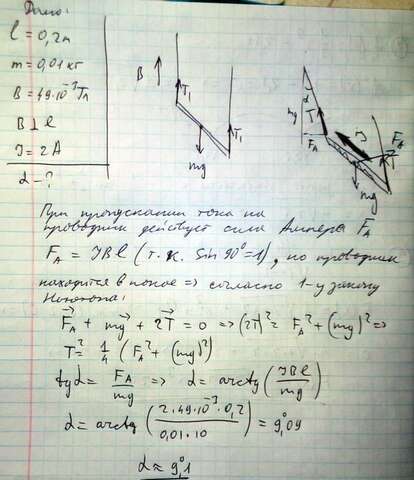 Дано:
l = 0,2м
m = 0,01 кг
B = 49·10⁻³ Тл
B ⊥ l
J = 2 A
α - ?
B T₁ T₁ mg
α mg T F_A J F_A T mg
При пропускании тока на
проводник действует сила Ампера F_A
F_A = JBl (т.к. sin 90° = 1), но проводник
находится в покое => согласно 1-у закону
Ньютона:
F⃗_A + mg⃗ + 2T⃗ = 0 => (2T)² = F_A² + (mg)² =>
T² = 1/4 (F_A² + (mg)²)
tg α = F_A/mg => α = arctg (JBl/mg)
α = arctg (2·49·10⁻³·0,2/0,01·10) = 9,°09
α ≈ 9,°1